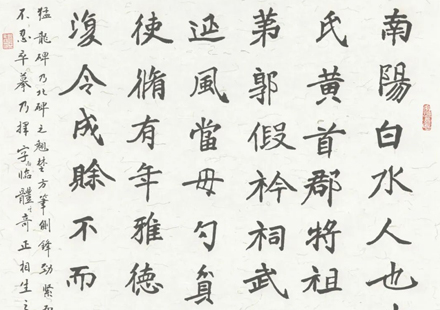 南陽白水人也
氏黄首郡將祖
弟郭假衿祠武
延風當毋勺貟
使脩有年雅德
復令成賖不而
猛龍碑乃北碑之翹楚方筆側鋒勁
不忍卒摹乃擇字臨體奇正相生之